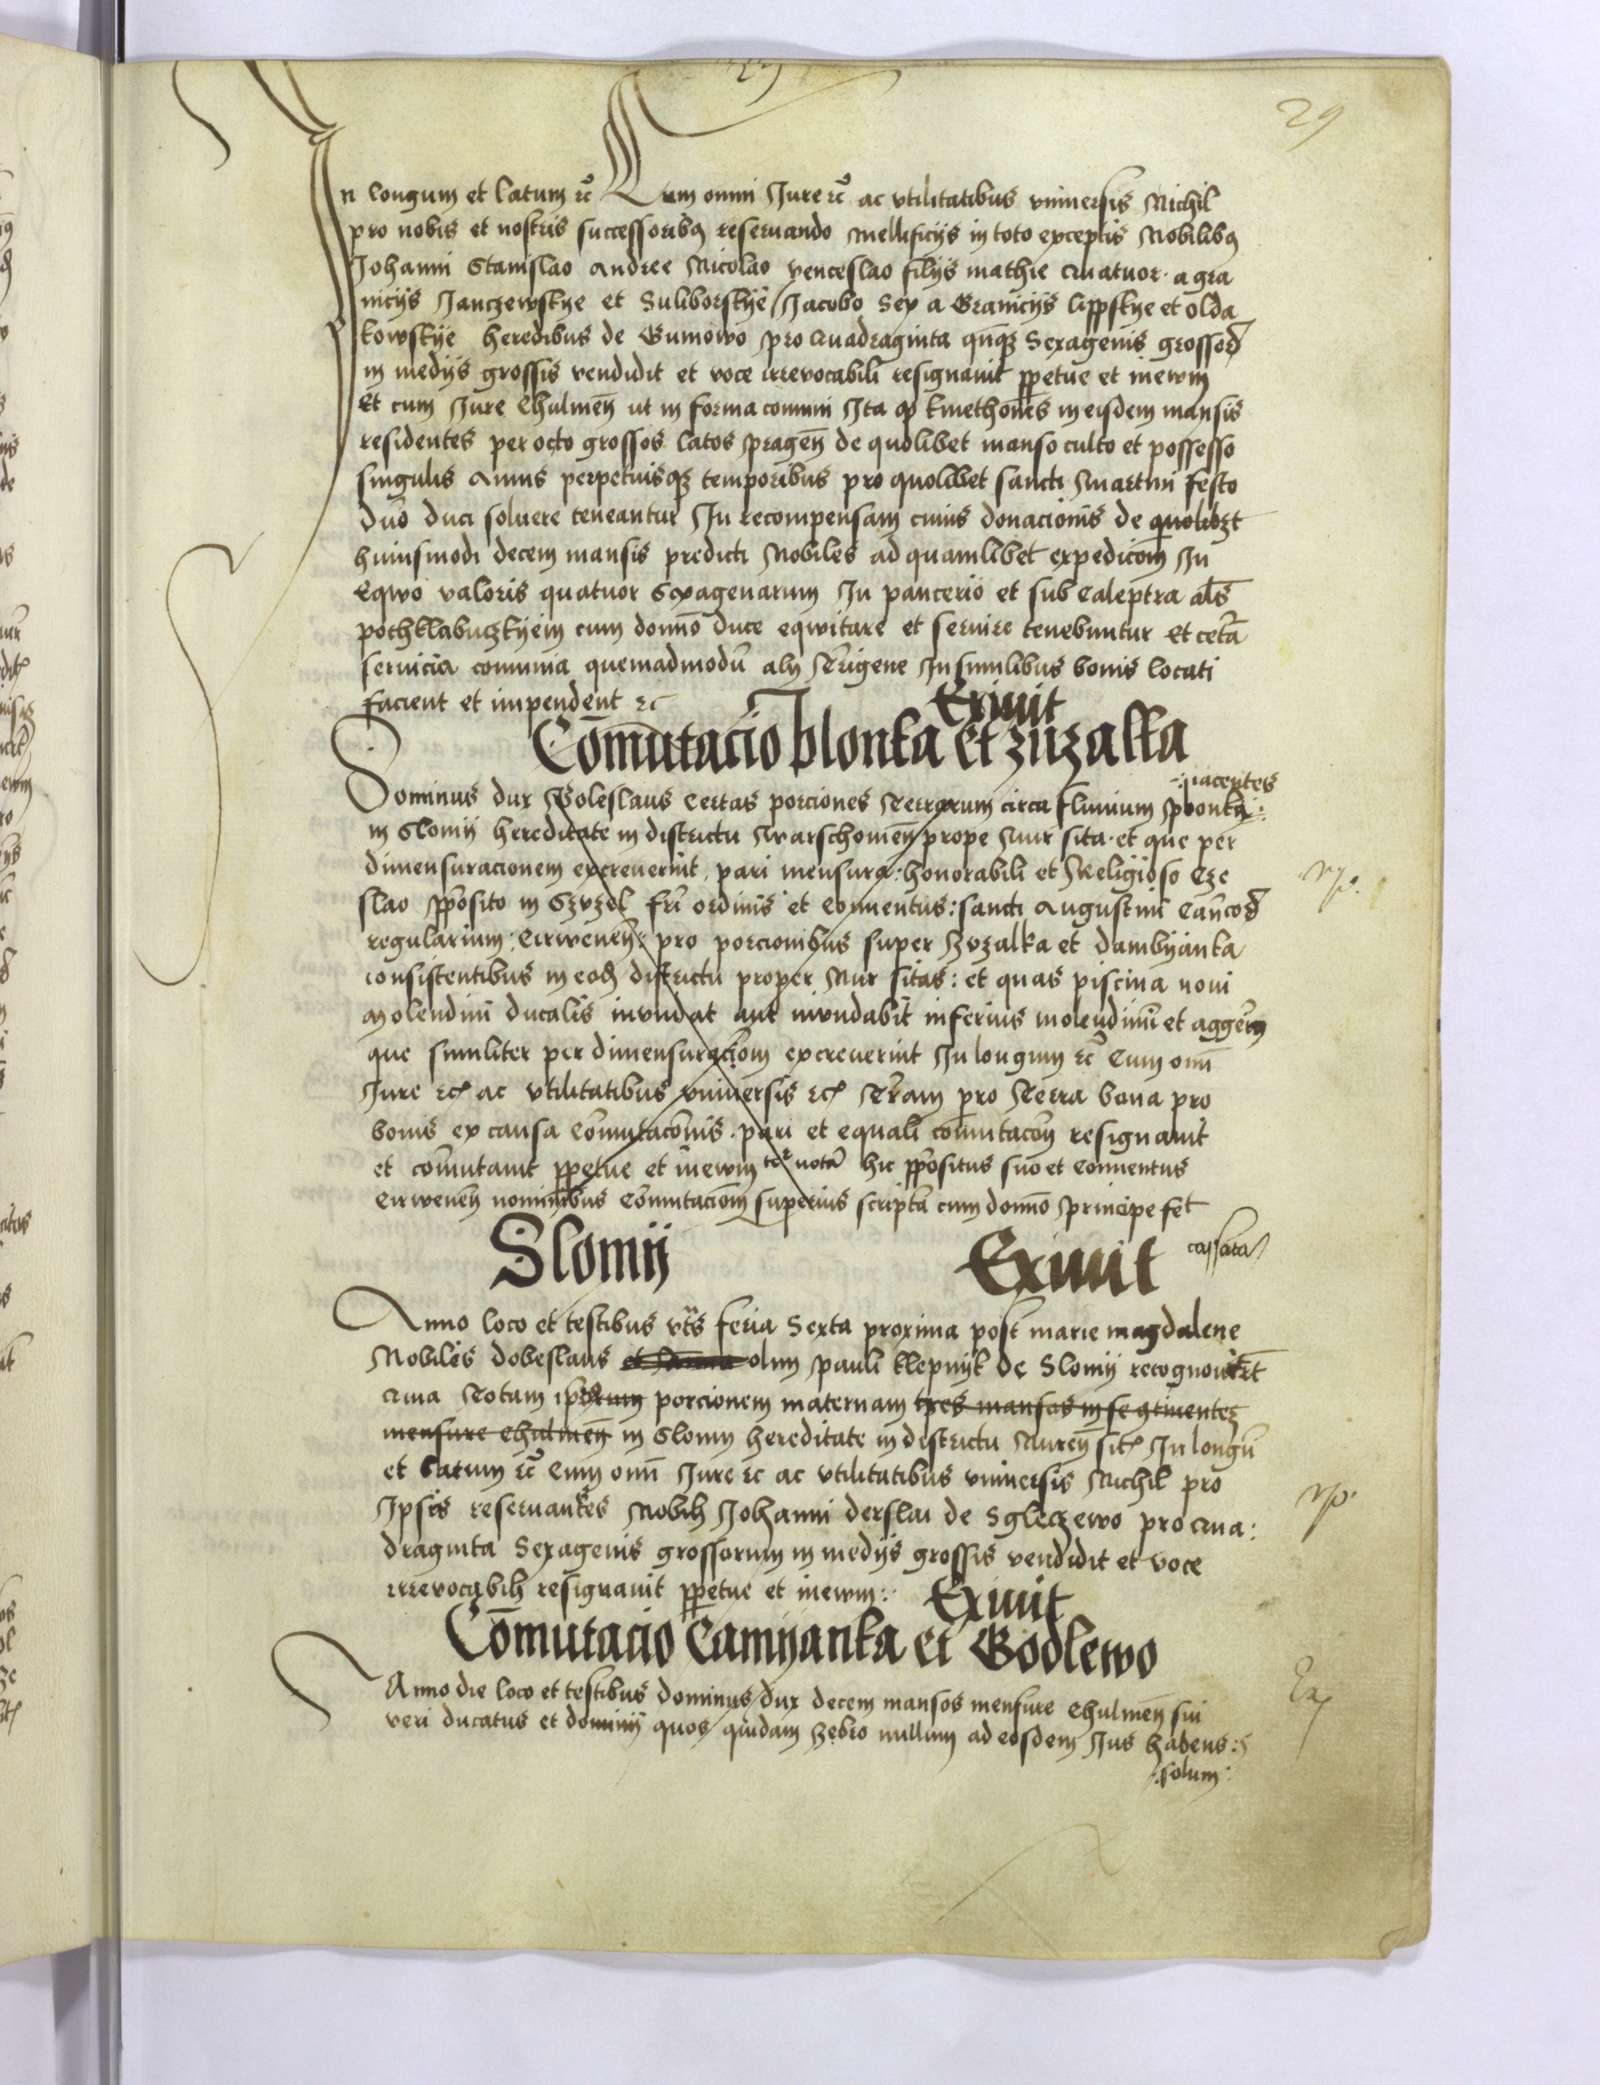 29
In longum et latum rc̃ Cum omni Jure rc̃ ac vtilitatibus vniuersis Nichil
pro nobis et nostris successoribꝫ reseruando Mellificijs in toto exceptis Nobilibꝫ
Johanni Stanislao Andree Nicolao venceslao filijs mathie Quatuor · a gra
nicijs Janczewskye et Suliborskye / Jacobo Sex a Granicijs lippskye et olda
kowskye heredibus de Gumowo pro Quadraginta quinqꝫ Sexagenis grossoꝝ
in medijs grossis vendidit et voce irreuocabili resignauit ppetue et ineum
Et cum Jure Chulmen̄ ut in forma comuni Ita ꝙ kmethones in eisdem mansis
residentes per octo grossos latos pragen̄ de quolibet manso culto et possesso
singulis Annis perpetuisqꝫ temporibus pro quolibet sancti Martini festo
dno duci soluere teneantur In recompensam cuius donacionis de quolibꝫt
huiusmodi decem mansis predicti Nobiles ad quamlibet expedicōm In
Eqwo valoris quatuor Sexagenarum In pancerio et sub Caleptra als̄
pothklabuczkyem cum domno duce eqwitare et seruire tenebuntur Et ceta
seruicia comunia quemadmodū alij Trigene In similibus bonis locati
facient et impendent rc
Exiuit
Cōmutacio blonka et zuzalka
:iacentes
Dominus dux Boleslaus Certas porciones Terrarum circa fluuium Bronka:
in Slomij hereditate in districtu Warschouien̄ prope Nur sita · et que per
dimensuracionem excreuerint · pari mensura : honorabili et Religioso Cze
slao pposito in Szvzel fri ordinis et Conuentus : sancti Augustini Cancoꝝ
regularium : Cirwenen̄ : pro porcionibus super Zvzalka et dambyanka
consistentibus in eodꝫ districtu proper Nur sitas : et quas piscina noui
Molendini ducalis invndat aut invndabit inferius molendinū et aggerem
que similiter per dimensuraciōm excreuerint In longum rc̃ Cum omī
Jure rc̃ ac vtilitatibus vniuersis rc̃ Terram pro Terra bona pro
bonis ex causa Comutaconis · pari et equali comutacōn resignauit
et comutauit ppetue et ineum notā hic ppositus suo et Conuentus
Cirwenen̄ nominibus Comutaciōm superius scriptā cum domno Principe fet
Slomij Exiuit cassata
Anno loco et testibus vts̄ feria Sexta proxima post marie magdalene
Nobiles dobeslaus olim pauli klepnijk de Slomij recognouit
Quia Totam ipsorum porcionem maternam tres mansos in se continentez
mensure Chulmen̄ in Slomij hereditate in districtu Nuren̄ sit̃ In longū
et Latum rc̃ Cum omī Jure rc ac vtilitatibus vniuersis Nichil pro
Ipsis reseruantes Nobili Johanni derslai de Sgleczewo pro Qua:
draginta Sexagenis grossorum in medijs grossis vendidit et voce
irreuocabili resignauit ppetue et ineum :
Exiuit
Cōmutacio Camijanka et Godlewo
Anno die loco et testibus dominus dux decem mansos mensure Chulmen̄ sui
veri ducatus et dominij quos quidam Zebro nullum ad eosdem Jus habens :
:solum: